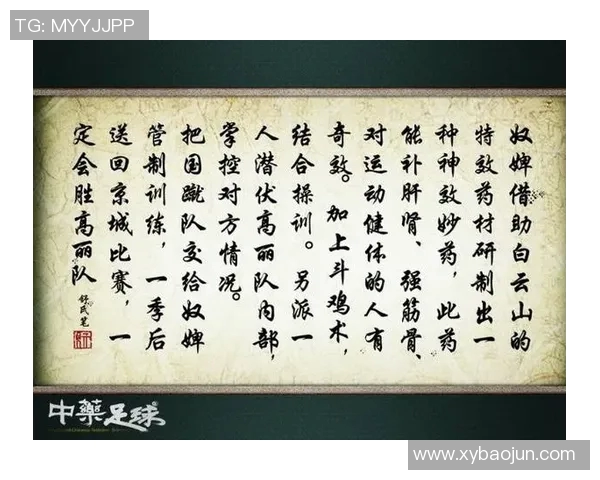 TG: MYYJJPP
奴婢借助白云山的
特效药材研制出一
种神效妙药，此药
能补肝肾、强筋骨、
对运动健体的人有
奇效。加上斗鸡术，
结合操训。另派一
人潜伏高丽队内部，
掌控对方情况。
把国蹴队交给奴婢
管制训练，一季后
送回京城比赛，一
定会胜高丽队
舒氏笔
中藥足球
www.xybaojun.com